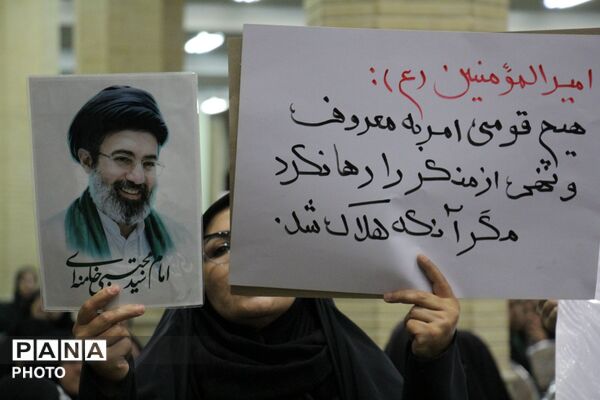 امیرالمؤمنین (ع):
هیچ قومی امر به معروف
و نهی از منکر را رها نکرد
مگر آنکه هلاک شد.
امام سید مجتبی خامنه‌ای
PANA
PHOTO